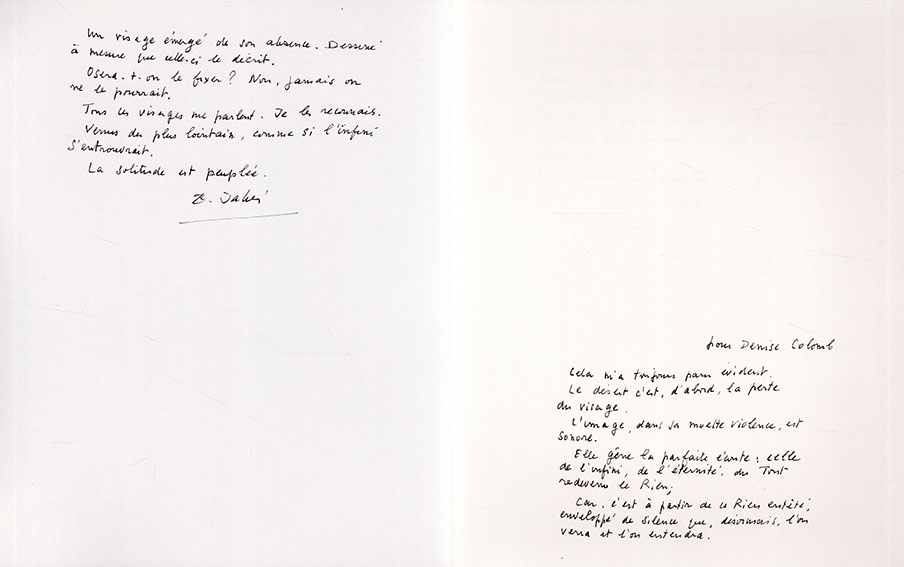 Un visage émergé de son absence. Dessiné
à mesure que celle-ci le décrit.
Osera-t-on le fixer ? Non, jamais on
ne le pourrait.
Tous ces visages me parlent. Je les reconnais.
Venus du plus lointain, comme si l'infini
s'entrouvrait.
La solitude est peuplée.
pour Denise Colomb
Cela m'a toujours paru évident.
Le désert c'est, d'abord, la perte
du visage.
L'image, dans sa muette violence, est
sonore.
Elle gêne la parfaite écoute : celle
de l'infini, de l'éternité. du Tout
redevenu le Rien;
Car. c'est à partir de ce Rien entêté,
enveloppé de silence que, désormais, l'on
verra et l'on entendra.